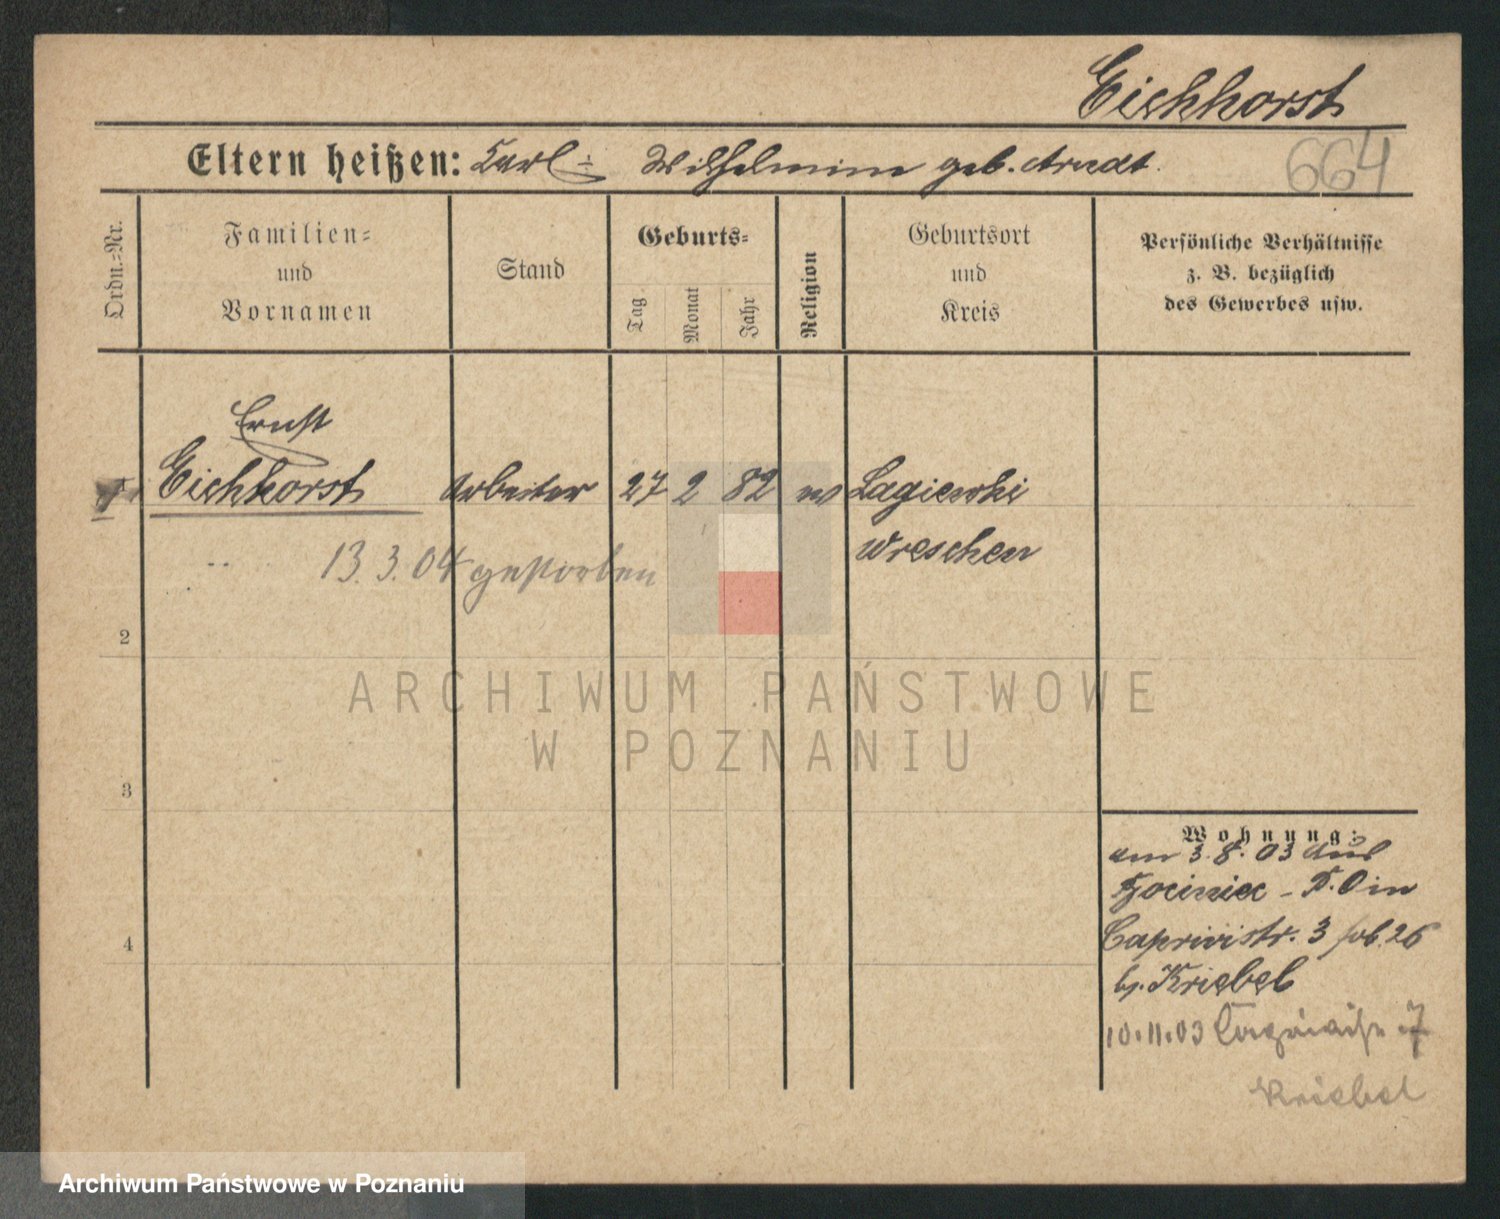 Eichhorst
Eltern heißen: Carl u. Wilhelmine geb. Arndt.
664
Ordn.-Nr.
Familien-
und
Vornamen
Stand
Geburts-
Tag
Monat
Jahr
Religion
Geburtsort
und
Kreis
Persönliche Verhältnisse
z. B. bezüglich
des Gewerbes usw.
Ernst
1 Eichhorst Arbeiter 27 2 82 ev Lagiewki
Wreschen
13. 3. 04 gestorben
2
3
4
Wohnung:
am 3. 8. 03 aus
- P. O in
Caprivistr. 3 26
b. Kriebel
10. 11. 03 7
Kriebel
ARCHIWUM PAŃSTWOWE
W POZNANIU
Archiwum Państwowe w Poznaniu